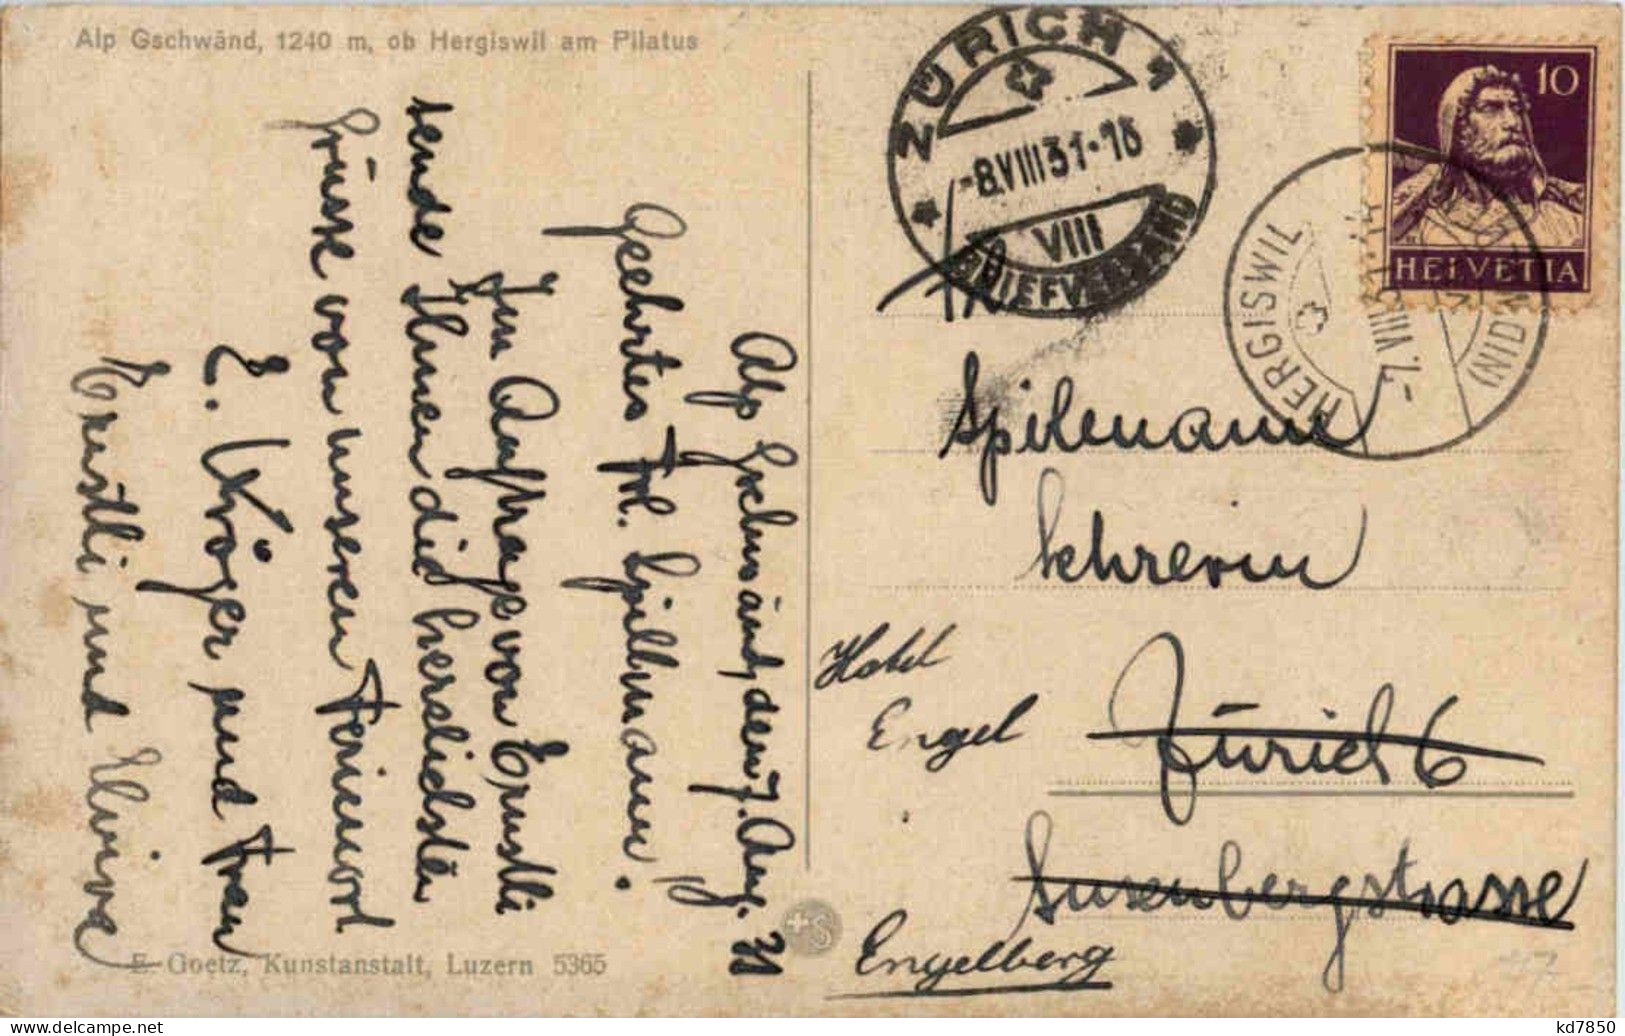 Alp Gschwänd, 1240 m, ob Hergiswil am Pilatus
Alp Gschwänd, den 7. Aug. 31
Geehrtes Frl. Spillmann.
Im Auftrage von Ernstli
sende Ihnen die herzlichsten
Grüsse von unserem Ferienort
E. Kröger und Frau
Ernstli und Elvira
E. Goetz, Kunstanstalt, Luzern 5365
+S
ZÜRICH 1
-8.VIII 31-16
VIII
BRIEFVERSAND
10
HELVETIA
HERGISWIL
-7.VIII.31
(NIDW
Spilmann
Lehrerin
Hotel
Engel
Zürich 6
Susenbergstrasse
Engelberg
kd7850